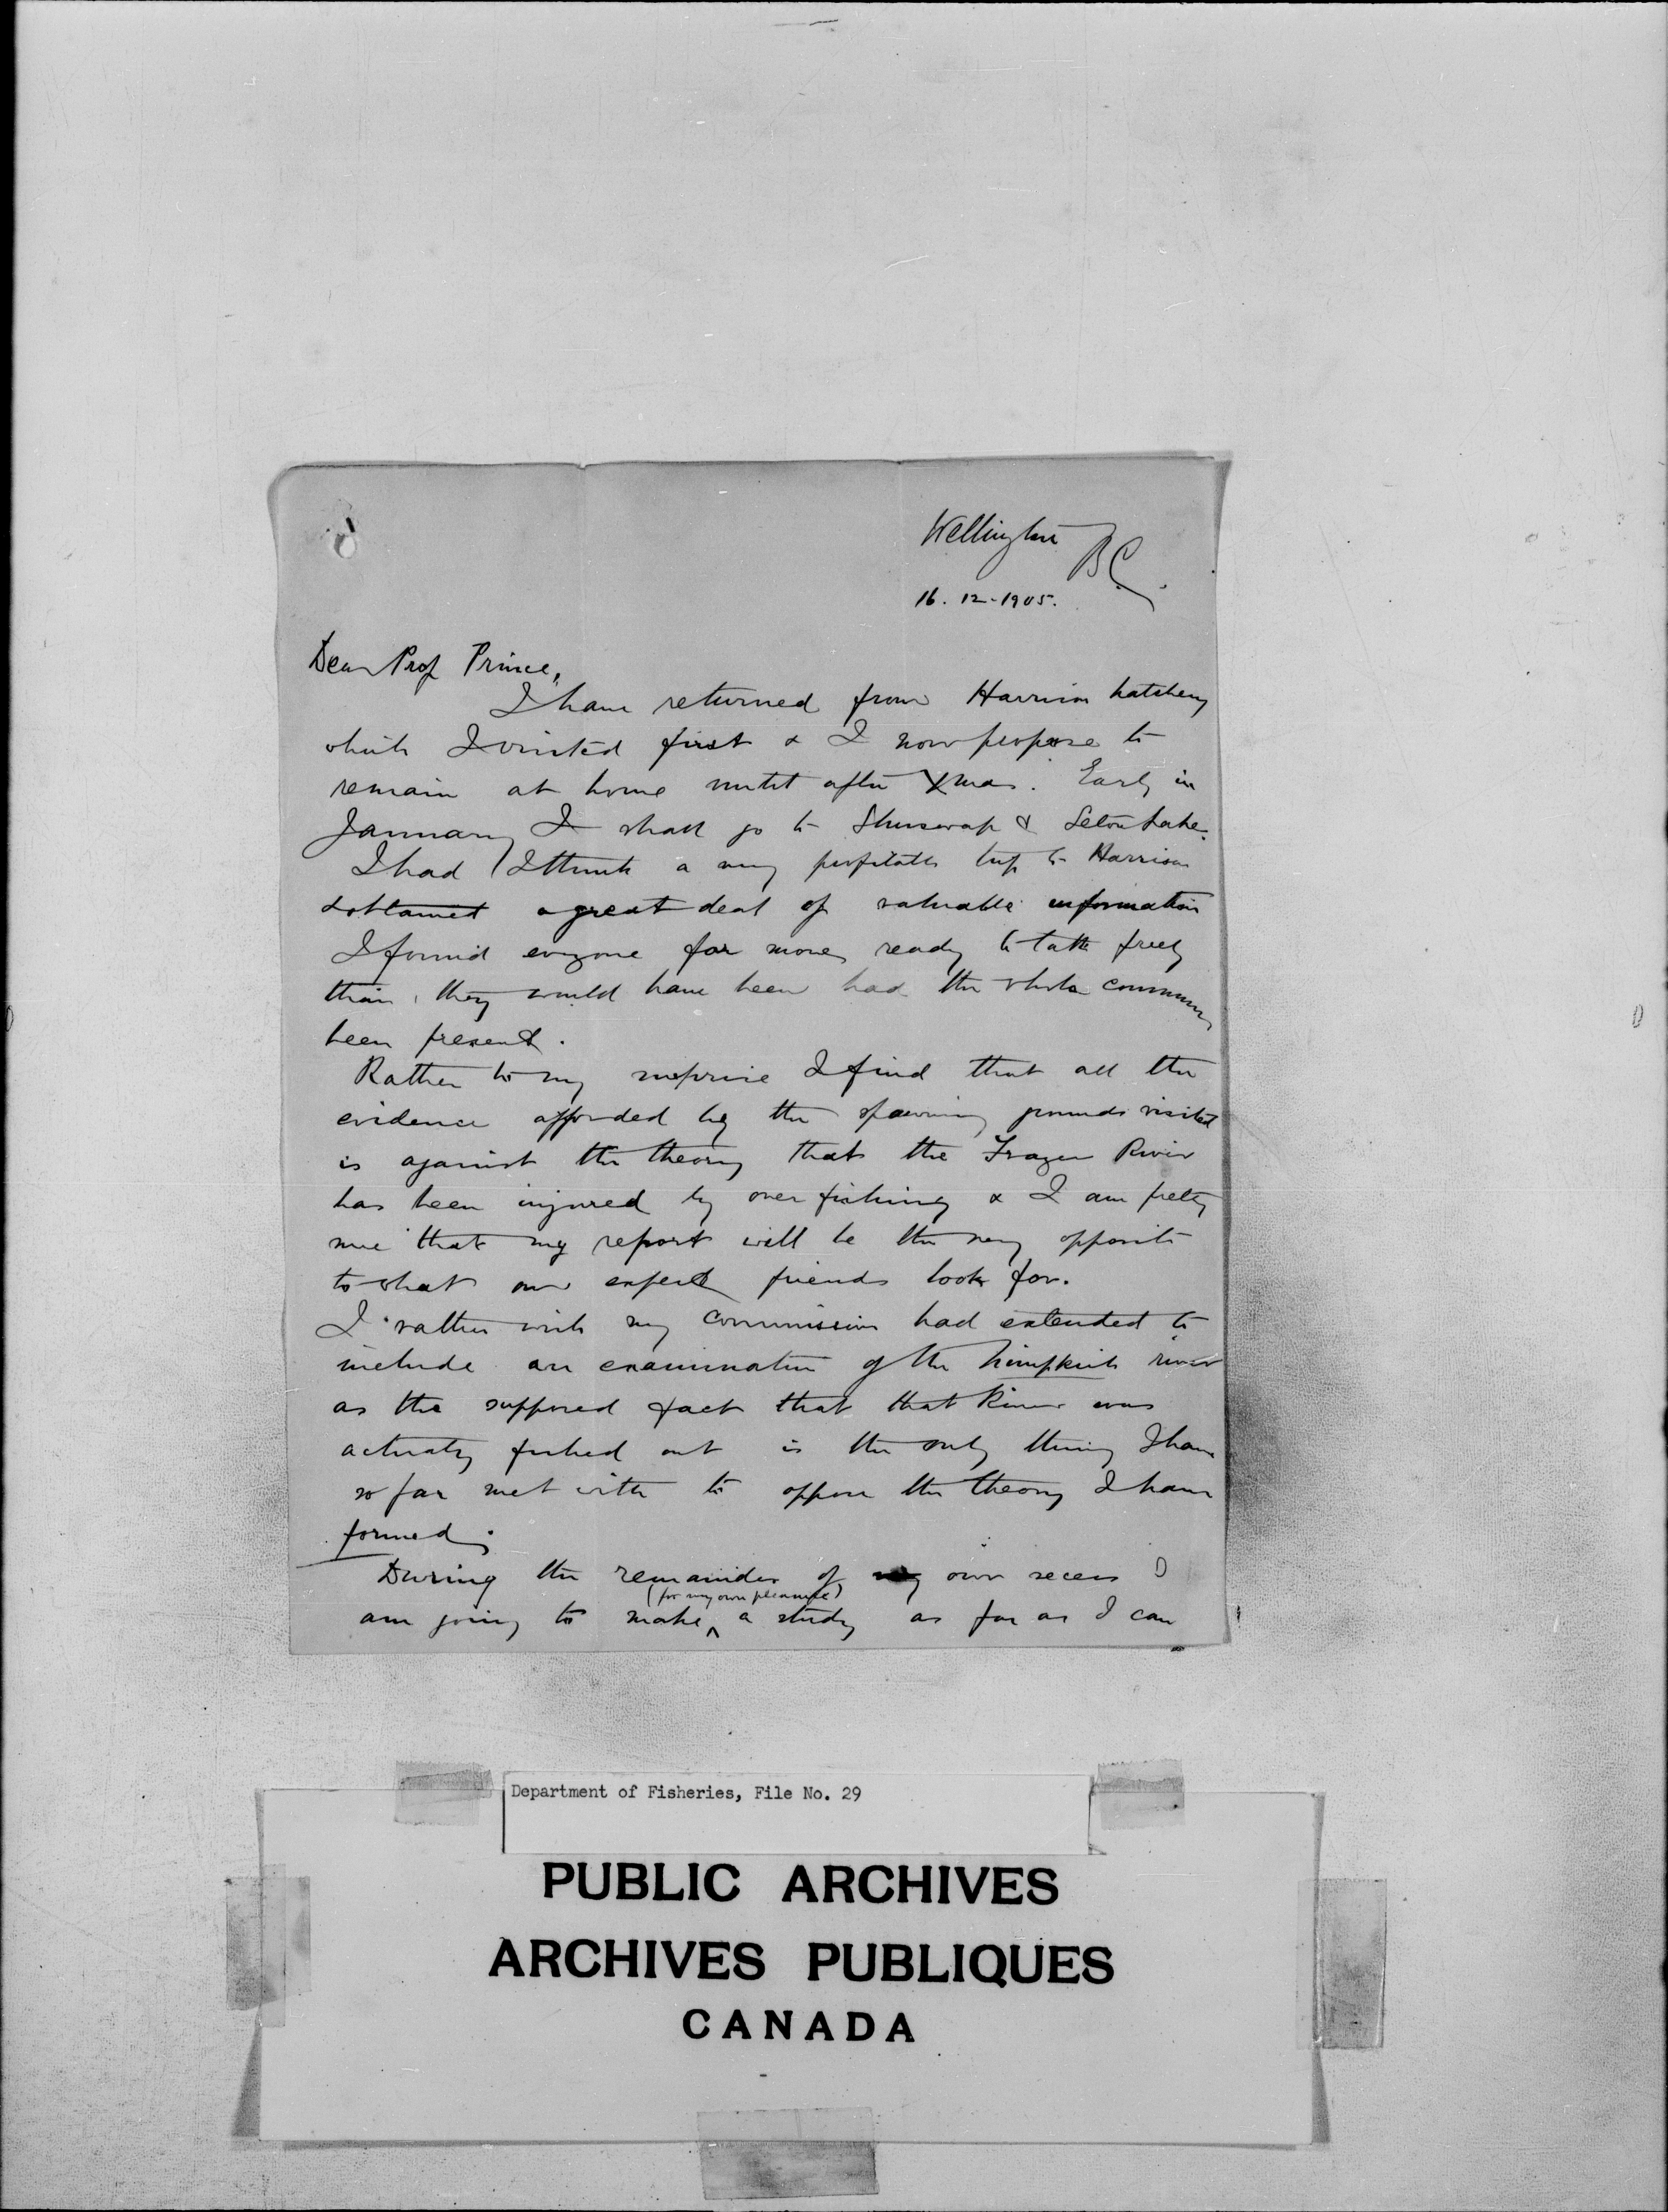 Wellington
B.C.
16. 12 - 1905.
Dear Prof Prince,
I have returned from Harrison hatchery
which I visited first & I now propose to
remain at home until after Xmas. Early in
January I shall go to Shuswap & Seton Lake.
I had I think a very profitable trip to Harrison
& obtained a great deal of valuable information
I found everyone far more ready to talk freely
than they would have been had the whole
been present.
Rather to my surprise I find that all the
evidence afforded by the spawning grounds visited
is against the theory that the Frazer River
has been injured by over fishing & I am pretty
sure that my report will be the very opposite
to what our expert friends look for.
I rather wish my commission had extended to
include an examination of the Nimpkish river
as the supposed fact that that River was
actually fished out is the only thing I have
so far met with to oppose the theory I have
formed.
During the remainder of my own recess I
(for my own pleasure)
am going to make a study as far as I can
Department of Fisheries, File No. 29
PUBLIC ARCHIVES
ARCHIVES PUBLIQUES
CANADA